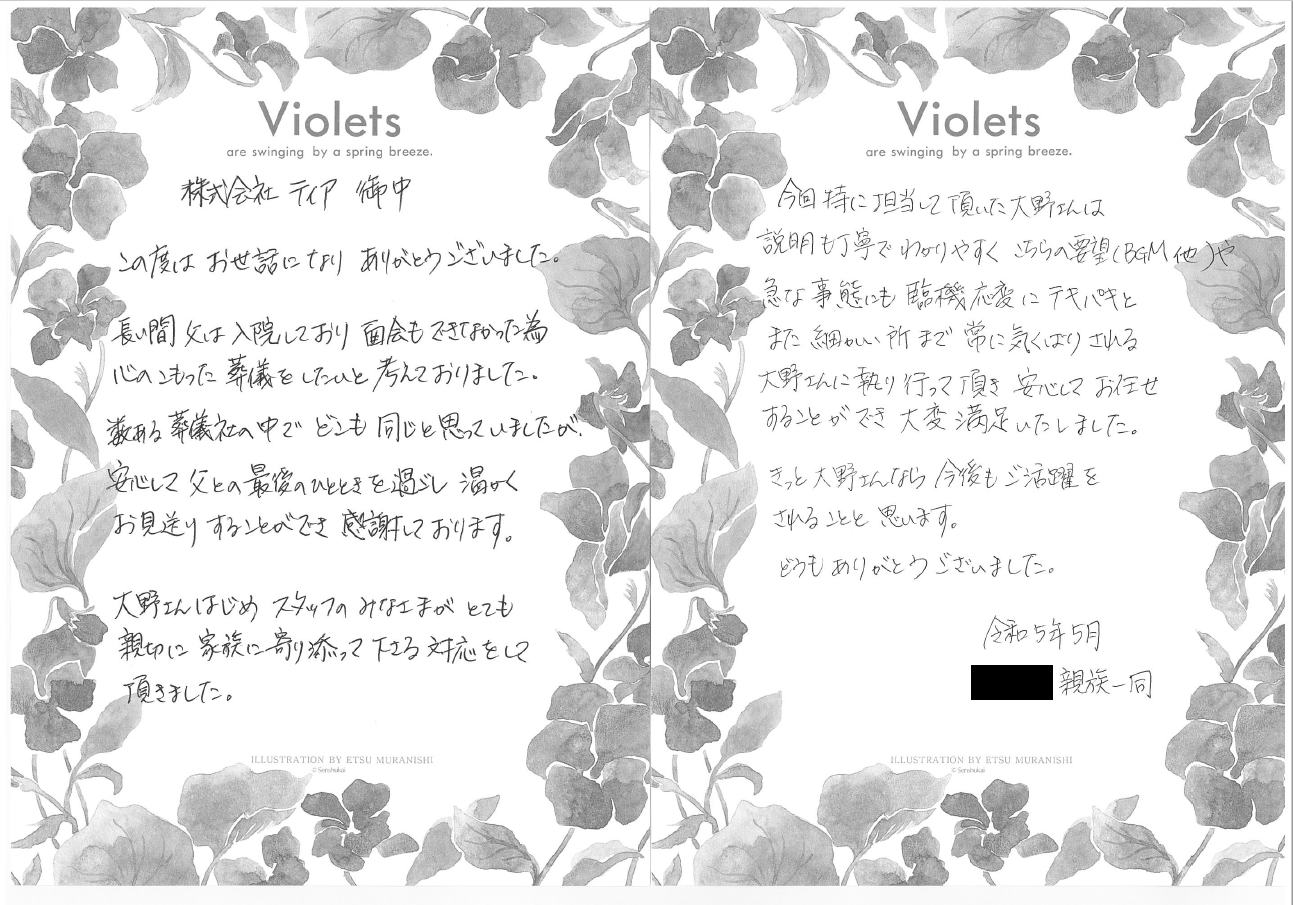 Violets
are swinging by a spring breeze.
株式会社 ティア 御中
この度は お世話になり ありがとうございました。
長い間 父は入院しており 面会もできなかった為
心のこもった 葬儀をしたいと考えておりました。
数ある葬儀社の中で どこも同じと思っていましたが、
安心して 父との最後のひとときを過ごし 温かく
お見送りすることができ 感謝しております。
大野さんはじめ スタッフのみなさまが とても
親切に 家族に寄り添って下さる対応をして
頂きました。
ILLUSTRATION BY ETSU MURANISHI
© Senshukai
Violets
are swinging by a spring breeze.
今回特に担当して頂いた大野さんは
説明も丁寧で わかりやすく こちらの要望(BGM他)や
急な事態にも 臨機応変に テキパキと
また 細かい所まで 常に気くばりされる
大野さんに執り行って頂き 安心して お任せ
することができ 大変満足いたしました。
きっと大野さんなら 今後もご活躍を
されることと思います。
どうもありがとうございました。
令和5年5月
親族一同
ILLUSTRATION BY ETSU MURANISHI
© Senshukai